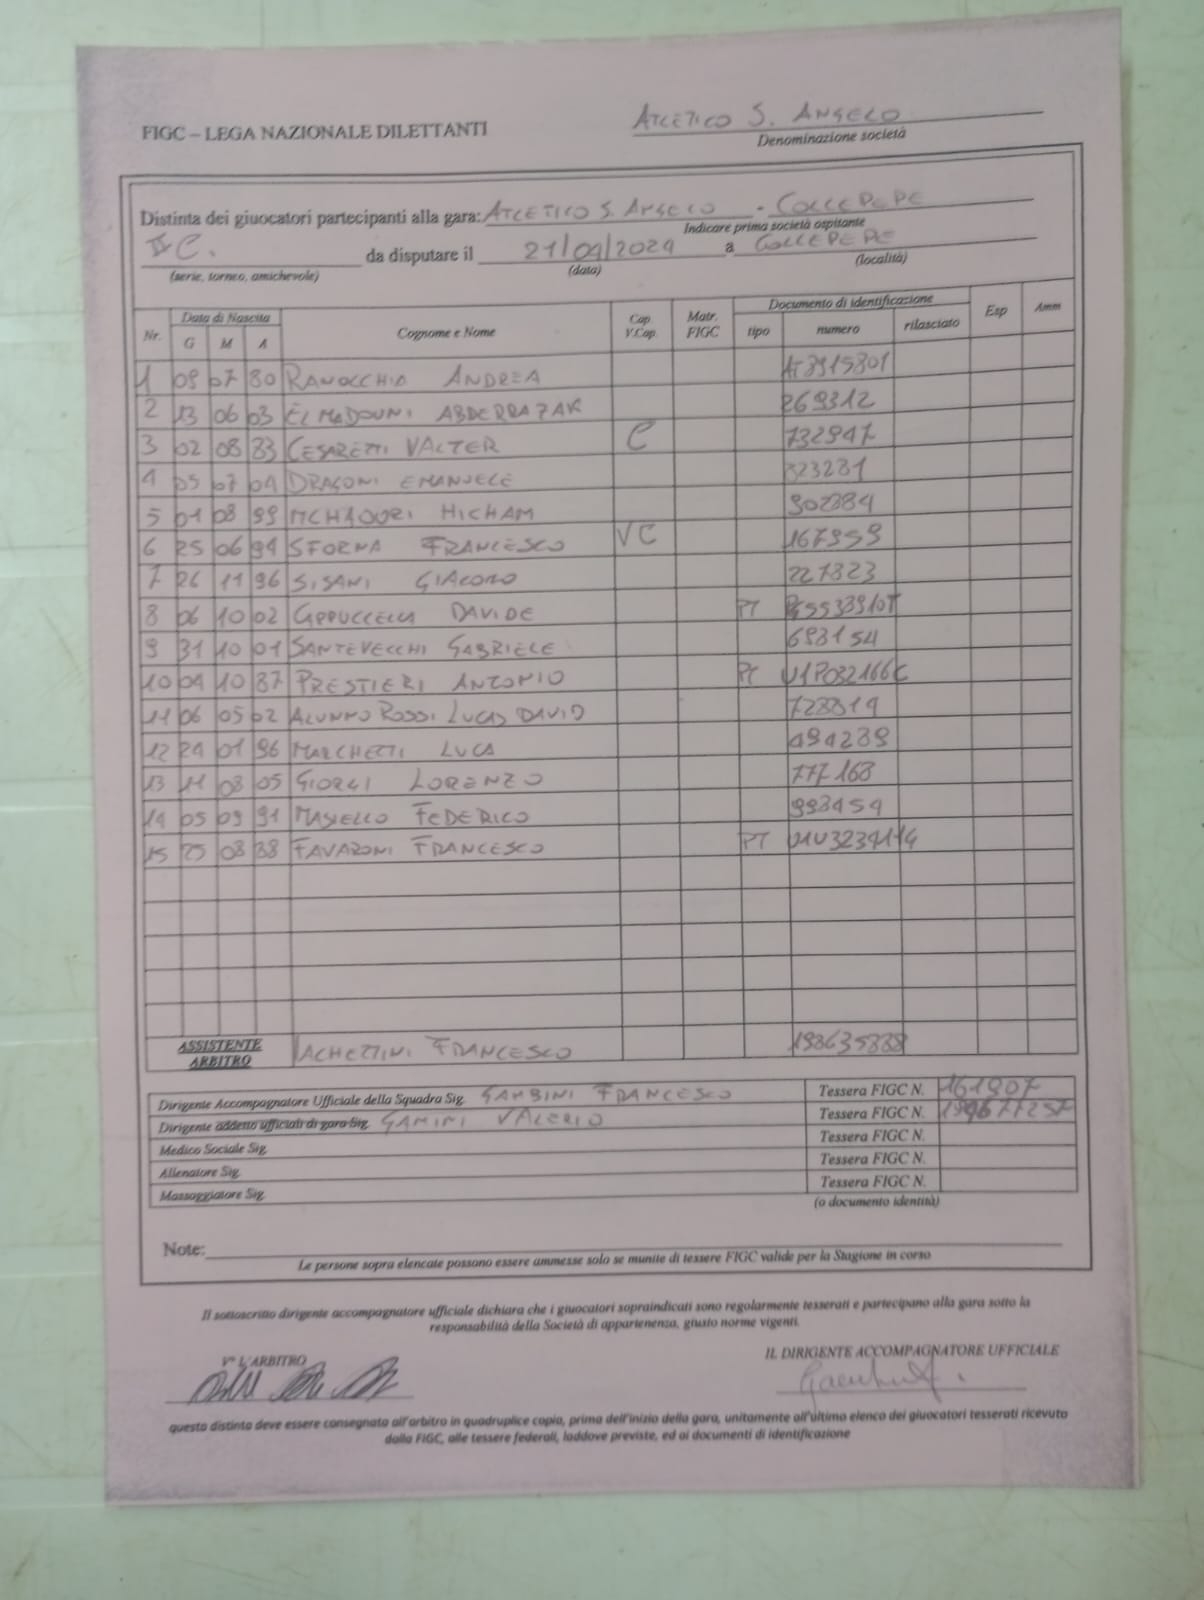 FIGC – LEGA NAZIONALE DILETTANTI
ATLETICO S. ANGELO
Denominazione società
Distinta dei giuocatori partecipanti alla gara: ATLETICO S. ANGELO - COLLEPEPE
Indicare prima società ospitante
II C. da disputare il 21/09/2024 a COLLEPEPE
(serie, torneo, amichevole) (data) (località)
Nr. Data di Nascita G M A Cognome e Nome Cap. V.Cap. Matr. FIGC Documento di identificazione tipo numero rilasciato Esp Amm
1 07 80 RANOCCHIA ANDREA
2 13 06 03 EL MADOUNI ABDERRAZAK 269312
3 02 08 83 CESARETTI VALTER C 732947
4 05 07 04 DRAGONI EMANUELE 323231
5 01 08 99 MCHAOURI HICHAM
6 25 06 94 SFORNA FRANCESCO VC 167959
7 26 11 96 SISANI GIACOMO 227823
8 06 10 02 CAPPUCCELLA DAVIDE PT
9 31 10 01 SANTEVECCHI GABRIELE 693154
10 04 10 87 PRESTIERI ANTONIO PT U1P032166C
11 06 05 02 ALUNNO ROSSI LUCAS DAVID
12 24 01 96 MARCHETTI LUCA 494289
13 11 08 05 GIORGI LORENZO 777168
14 05 09 91 MASIELLO FEDERICO 993454
15 25 08 88 FAVARONI FRANCESCO PT
ASSISTENTE ARBITRO IACHETTINI FRANCESCO
Dirigente Accompagnatore Ufficiale della Squadra Sig. GAMBINI FRANCESCO Tessera FIGC N. 161907
Dirigente addetto ufficiali di gara Sig. GAMINI VALERIO Tessera FIGC N.
Medico Sociale Sig. Tessera FIGC N.
Allenatore Sig. Tessera FIGC N.
Massaggiatore Sig. Tessera FIGC N.
(o documento identità)
Note:
Le persone sopra elencate possono essere ammesse solo se munite di tessere FIGC valide per la Stagione in corso
Il sottoscritto dirigente accompagnatore ufficiale dichiara che i giuocatori sopraindicati sono regolarmente tesserati e partecipano alla gara sotto la
responsabilità della Società di appartenenza, giusto norme vigenti.
V° L'ARBITRO IL DIRIGENTE ACCOMPAGNATORE UFFICIALE
questa distinta deve essere consegnata all'arbitro in quadruplice copia, prima dell'inizio della gara, unitamente all'ultimo elenco dei giuocatori tesserati ricevuto
dalla FIGC, alle tessere federali, laddove previste, ed ai documenti di identificazione